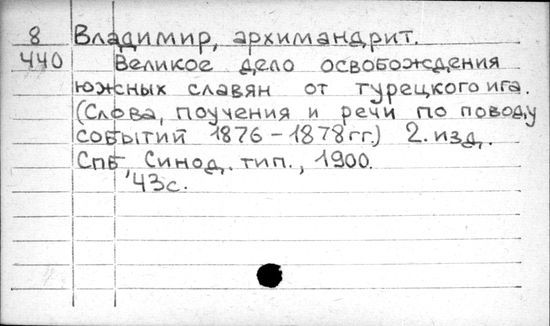 8 Владимир, архимандрит.
440 Великое дело освобождения
южных славян от турецкого ига.
(Слова, поучения и речи по поводу
событий 1876-1878гг.) 2. изд.
Спб Синод. тип., 1900.
43с.